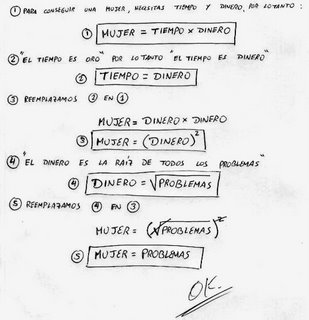 ① PARA CONSEGUIR UNA MUJER, NECESITAS TIEMPO Y DINERO, POR LO TANTO:
① MUJER = TIEMPO × DINERO
② "EL TIEMPO ES ORO" POR LO TANTO "EL TIEMPO ES DINERO"
② TIEMPO = DINERO
③ REEMPLAZAMOS ② EN ①
MUJER = DINERO × DINERO
③ MUJER = (DINERO)²
④ "EL DINERO ES LA RAÍZ DE TODOS LOS PROBLEMAS"
④ DINERO = √PROBLEMAS
⑤ REEMPLAZAMOS ④ EN ③
MUJER = (√PROBLEMAS)²
⑤ MUJER = PROBLEMAS
OK.